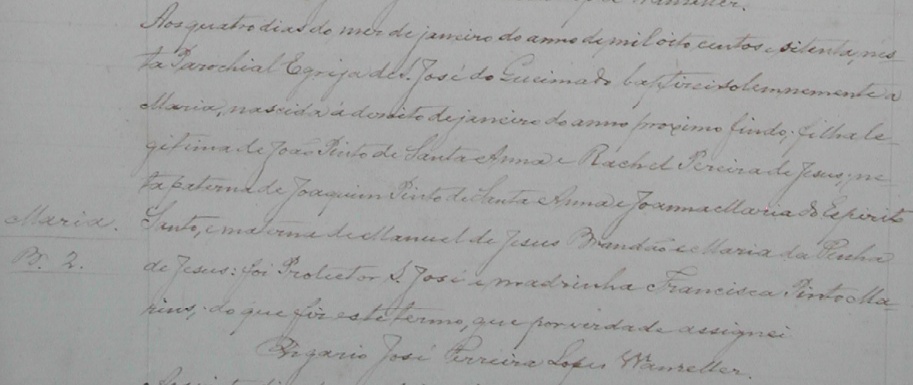 Wanzeller.
Aos quatro dias do mez de janeiro do anno de mil oito centos e sitenta, nes-
ta Parochial Egrija de S. José do Queimado baptizei solemnemente a
Maria, nascida á dezoito de janeiro do anno proximo findo; filha le-
gitima de João Pinto de Santa Anna e Rachel Pereira de Jesus; ne-
ta paterna de Joaquim Pinto de Santa Anna e Joanna Maria do Espirito
Maria.
Santo, e materna de Manuel de Jesus Brandão e Maria da Penha
B. 2.
de Jesus: foi Protector S. José e madrinha Francisca Pinto Ma-
rins; do que fiz este termo, que por verdade assignei
Vigario José Ferreira Lopes Wanzeller.